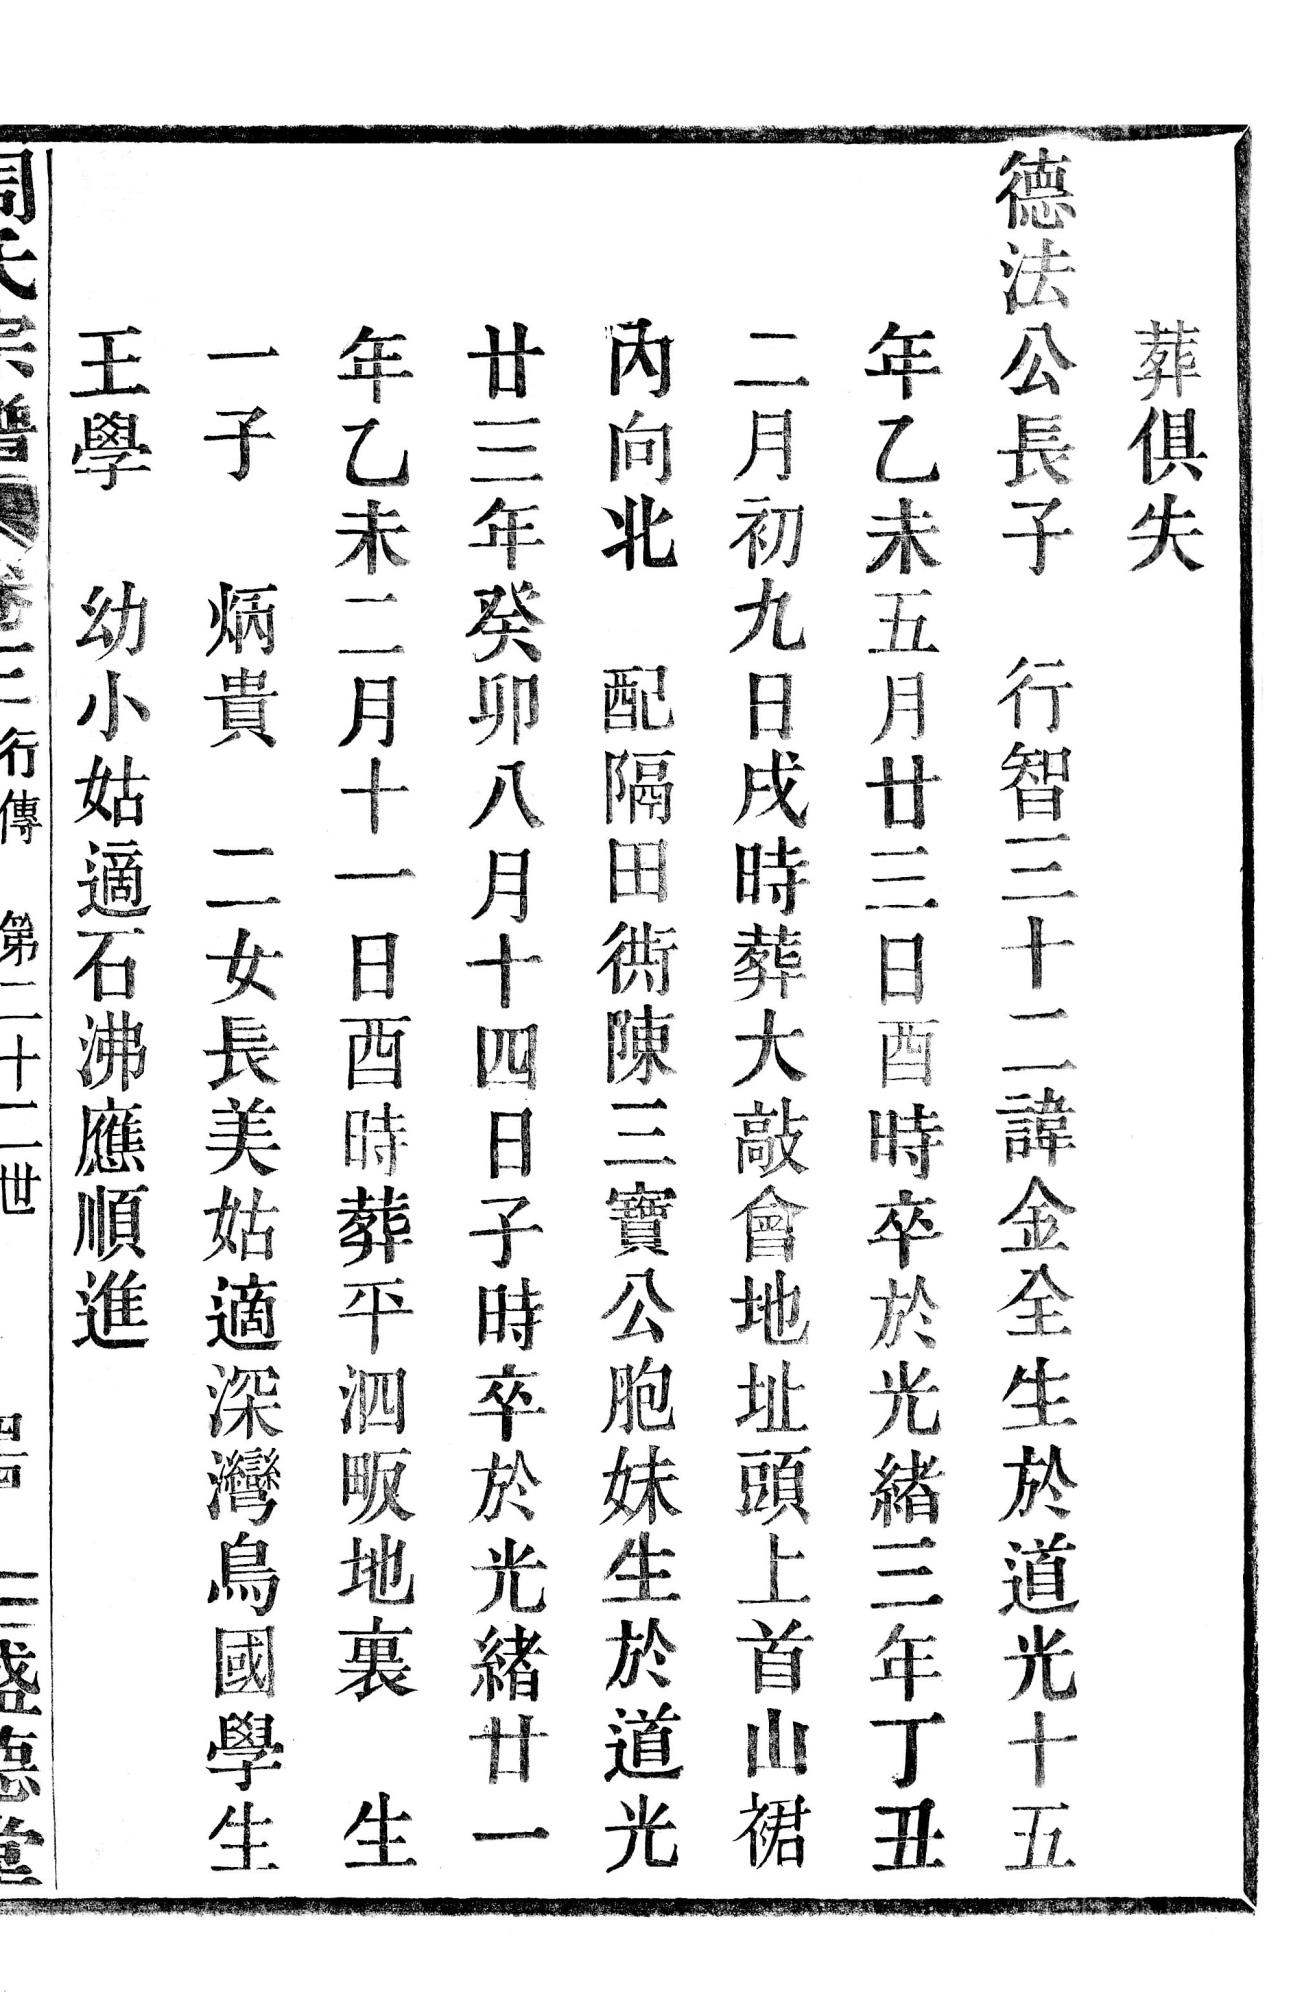 葬俱失
德法公長子　行智三十二諱金全生於道光十五
年乙未五月廿三日酉時卒於光緒三年丁丑
二月初九日戌時葬大敲會地址頭上首山裙
丙向北　配隔田衖陳三寶公胞妹生於道光
廿三年癸卯八月十四日子時卒於光緒廿一
年乙未二月十一日酉時葬平泗畈地裏　生
一子　炳貴　二女長美姑適深灣烏國學生
王學　幼小姑適石沸應順進
周氏宗譜　卷二　行傳　第二十二世　盛德堂